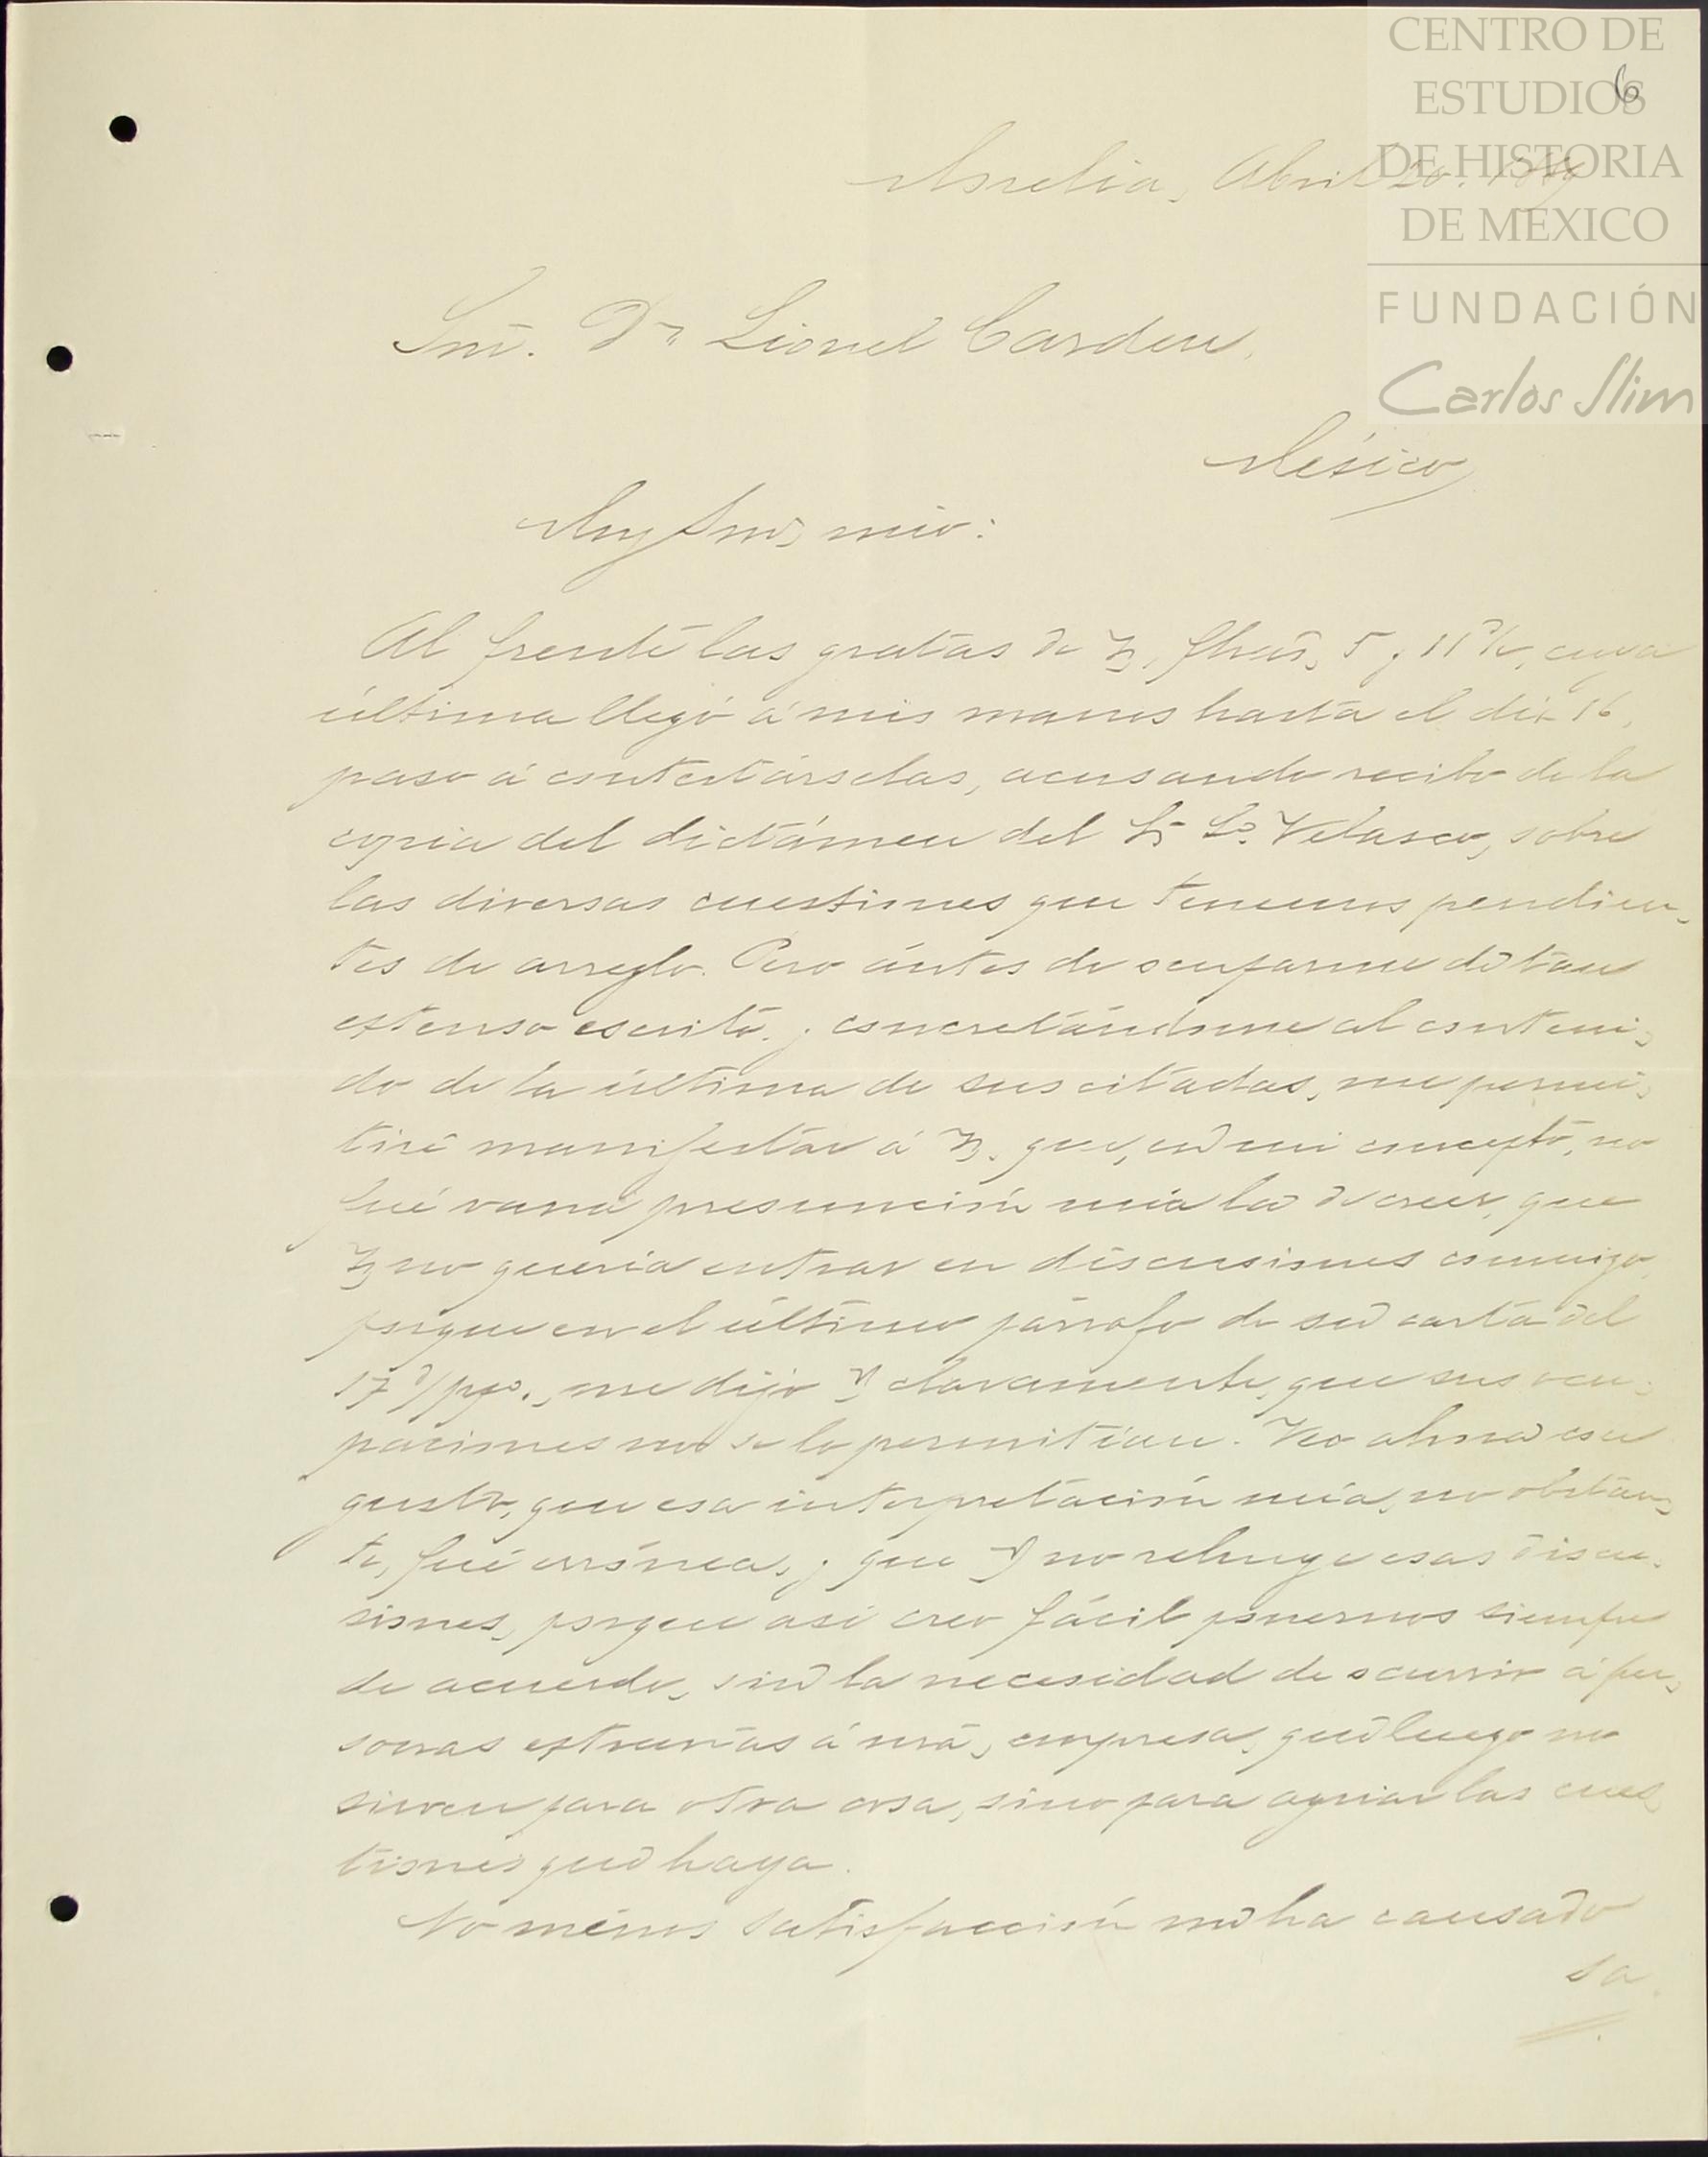 CENTRO DE
ESTUDIOS
DE HISTORIA
DE MEXICO
FUNDACIÓN
Carlos Slim
6
Morelia, Abril 20.
Snr. Dn Lionel Carden.
México
Muy Snr, mio:
Al frente las gratas de V, fhas, 5 y 11 cuya
última llegó á mis manos hasta el dia 16,
paso á contestárselas, acusando recibo de la
copia del dictámen del Sr Lo. Velasco, sobre
las diversas cuestiones que tenemos pendien-
tes de arreglo. Pero ántes de ocuparme de tan
extenso escrito, y concretándome al conteni-
do de la última de sus citadas, me permi-
tiré manifestar á V. que, en mi concepto, no
fué vana presuncion mia la de creer, que
V no queria entrar en discusiones conmigo,
porque en el último párrafo de su carta del
17 d/ppo., me dijo V claramente, que sus ocu-
paciones no se lo permitian. Veo ahora con
gusto, que esa interpretación mia, no obstan-
te, fué errónea, y que V no rehuye esas discu-
siones, porque asi creo fácil ponernos siempre
de acuerdo, sin la necesidad de ocurrir á per-
sonas extrañas á nra, empresa, que luego no
sirven para otra cosa, sino para agriar las cues-
tiones que haya.
No ménos satisfacción me ha causado
sa